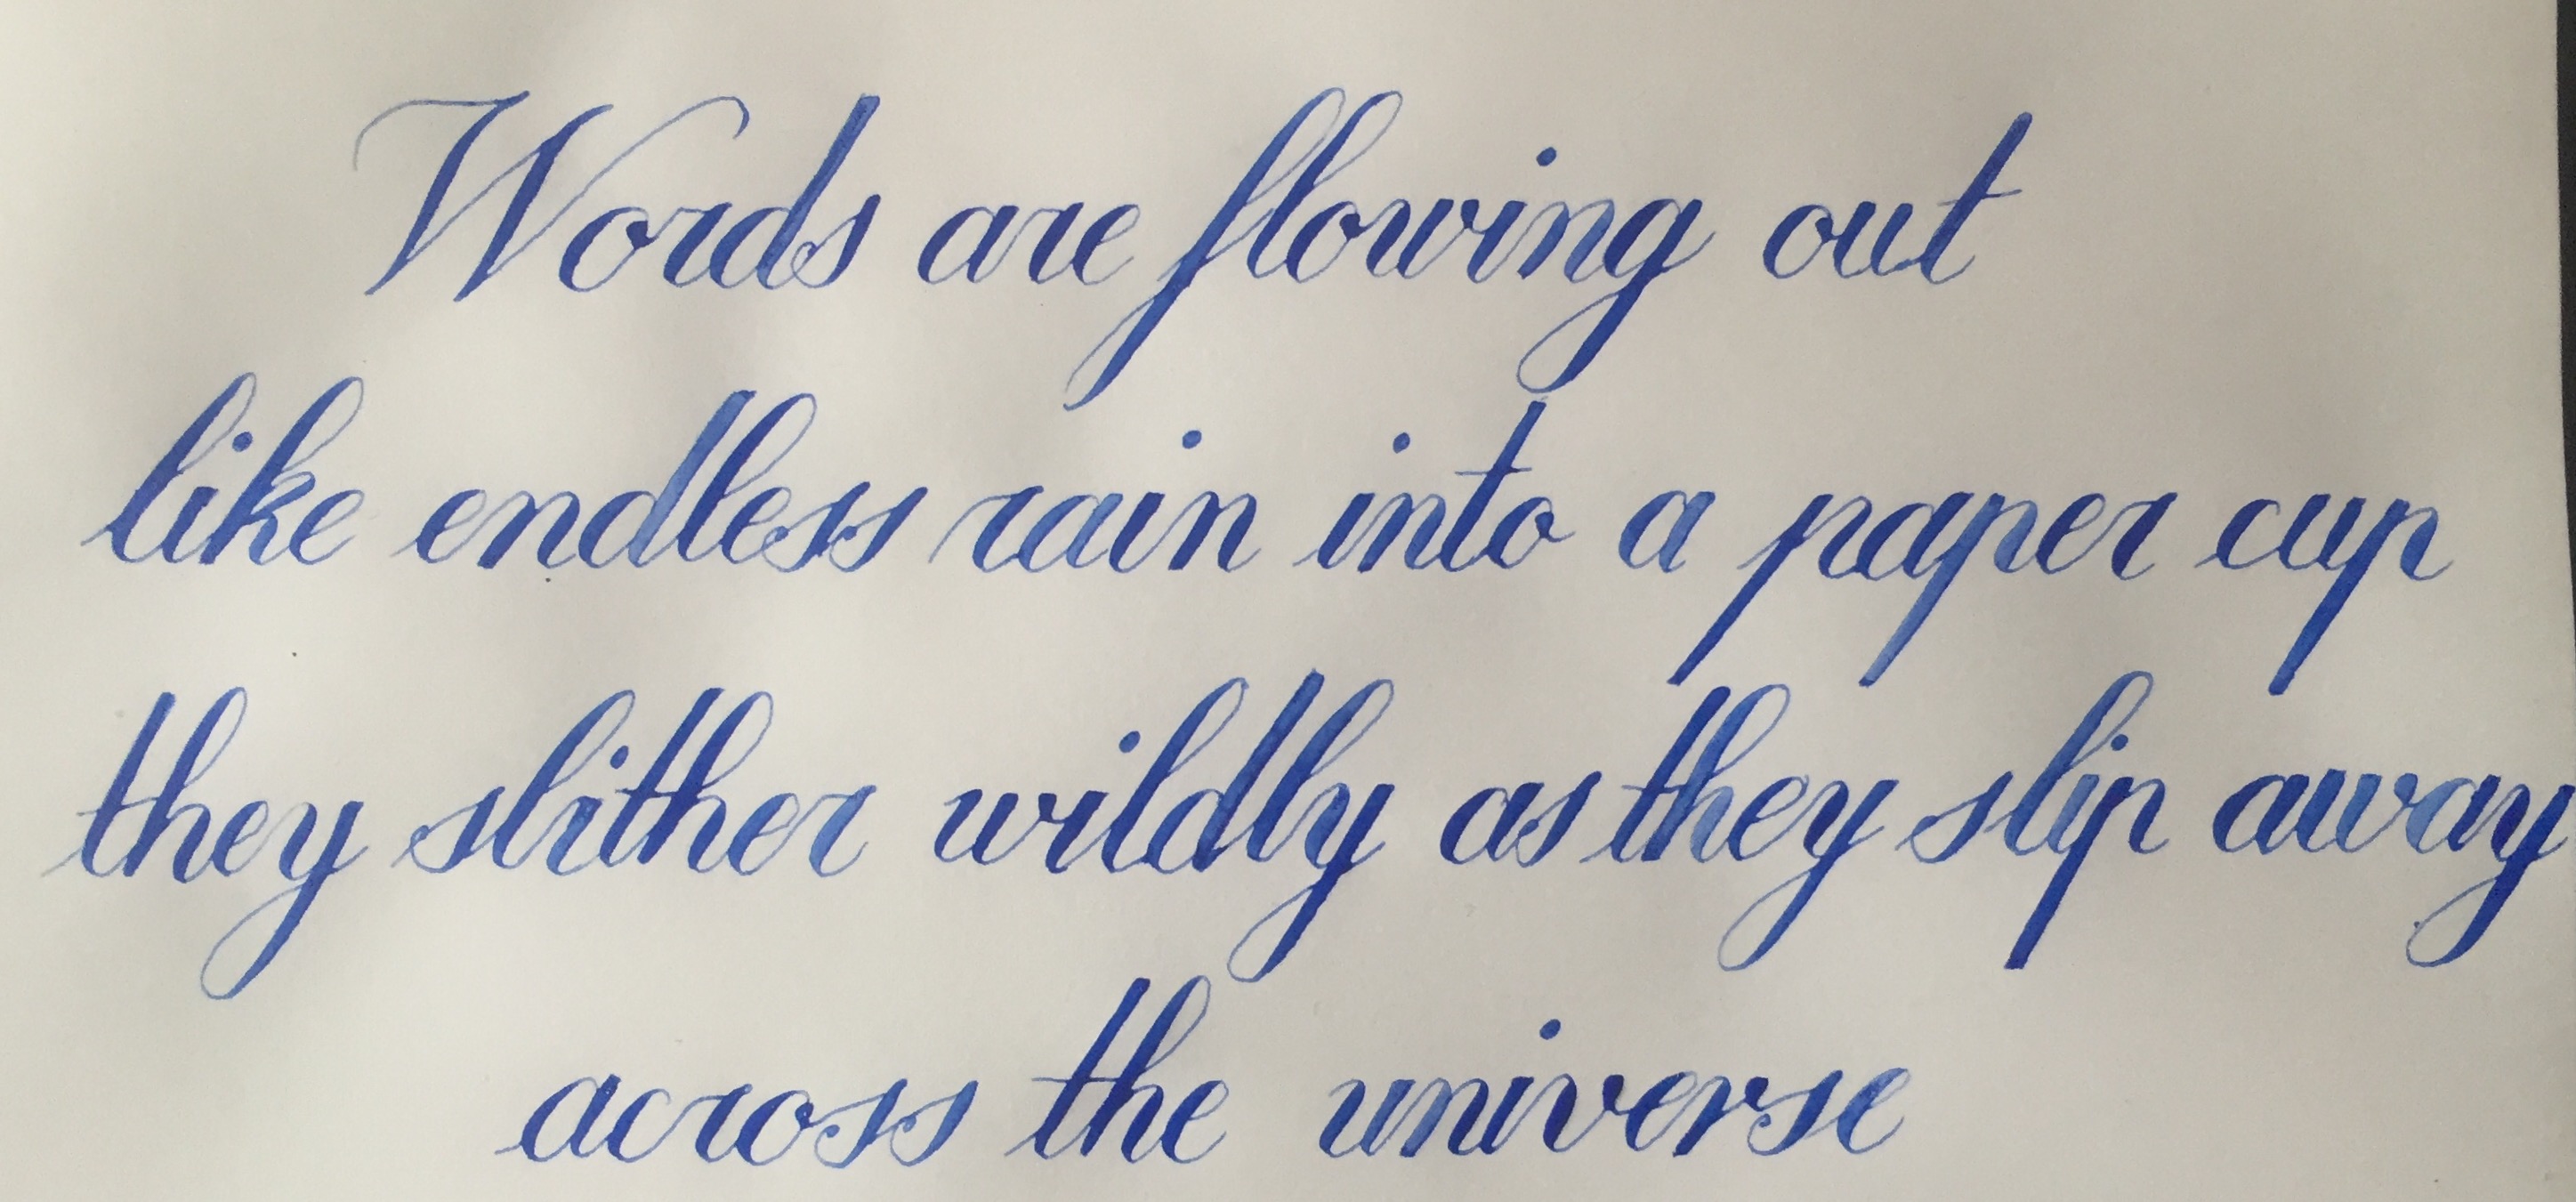 Words are flowing out
like endless rain into a paper cup
they slither wildly as they slip away
across the universe